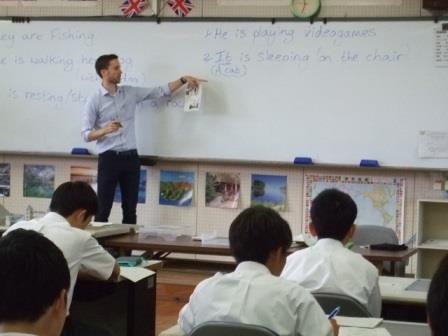 ey are Fishing
e is walking he
is resting/st
a ro
1. He is playing videogames
2. It is sleeping 'on the chair'
(A cat)